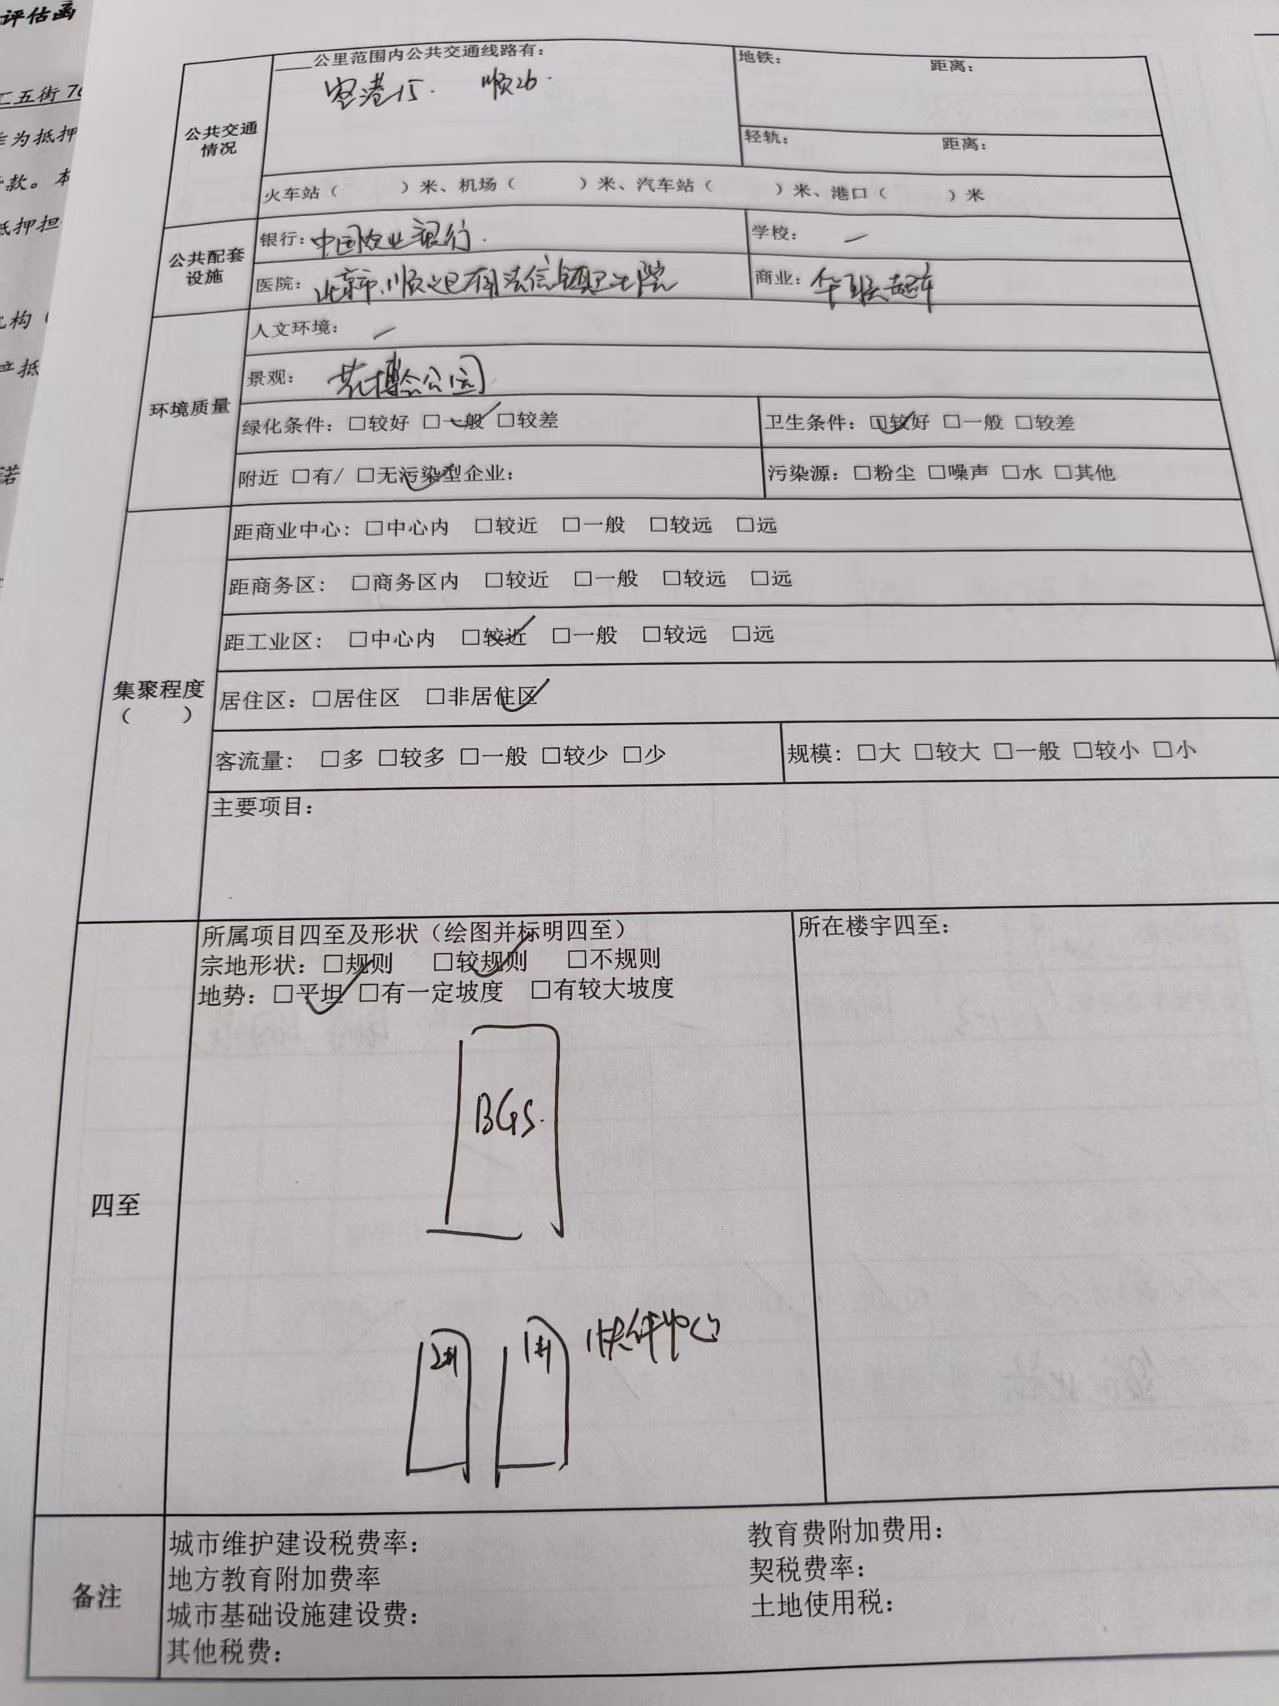 评估函
工五街 7
作为抵押
款。本
抵押担
机构（
产抵
诺
公共交通情况
____公里范围内公共交通线路有：
空港15. 顺26.
地铁： 距离：
轻轨： 距离：
火车站（ ）米、机场（ ）米、汽车站（ ）米、港口（ ）米
公共配套设施
银行：中国农业银行. 学校：—
医院：北京市顺义区南法信镇卫生院 商业：华联超市
环境质量
人文环境：—
景观：花博会公园
绿化条件：□较好 □一般✓ □较差 卫生条件：□较好✓ □一般 □较差
附近 □有/ □无污染型企业：✓ 污染源：□粉尘 □噪声 □水 □其他
集聚程度
（ ）
距商业中心：□中心内 □较近 □一般 □较远 □远
距商务区：□商务区内 □较近 □一般 □较远 □远
距工业区：□中心内 □较近✓ □一般 □较远 □远
居住区：□居住区 □非居住区✓
客流量：□多 □较多 □一般 □较少 □少 规模：□大 □较大 □一般 □较小 □小
主要项目：
四至
所属项目四至及形状（绘图并标明四至） 所在楼宇四至：
宗地形状：□规则✓ □较规则✓ □不规则
地势：□平坦✓ □有一定坡度 □有较大坡度
BGS.
2# 1# 快件中心
备注
城市维护建设税费率： 教育费附加费用：
地方教育附加费率 契税费率：
城市基础设施建设费： 土地使用税：
其他税费：